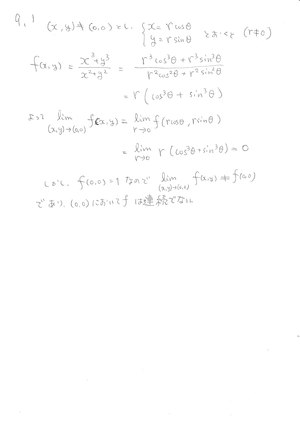 9,1
(x,y)≠(0,0)とし、{x=rcosθ y=rsinθ とおくと (r≠0)
f(x,y) = x³+y³/x²+y² = r³cos³θ+r³sin³θ/r²cos²θ+r²sin²θ
= r(cos³θ+sin³θ)
よって lim (x,y)→(0,0) f(x,y) = lim r→0 f(rcosθ, rsinθ)
= lim r→0 r(cos³θ+sin³θ) = 0
しかし、f(0,0)=1なので lim (x,y)→(0,0) f(x,y)≠f(0,0)
であり、(0,0)においてfは連続でない